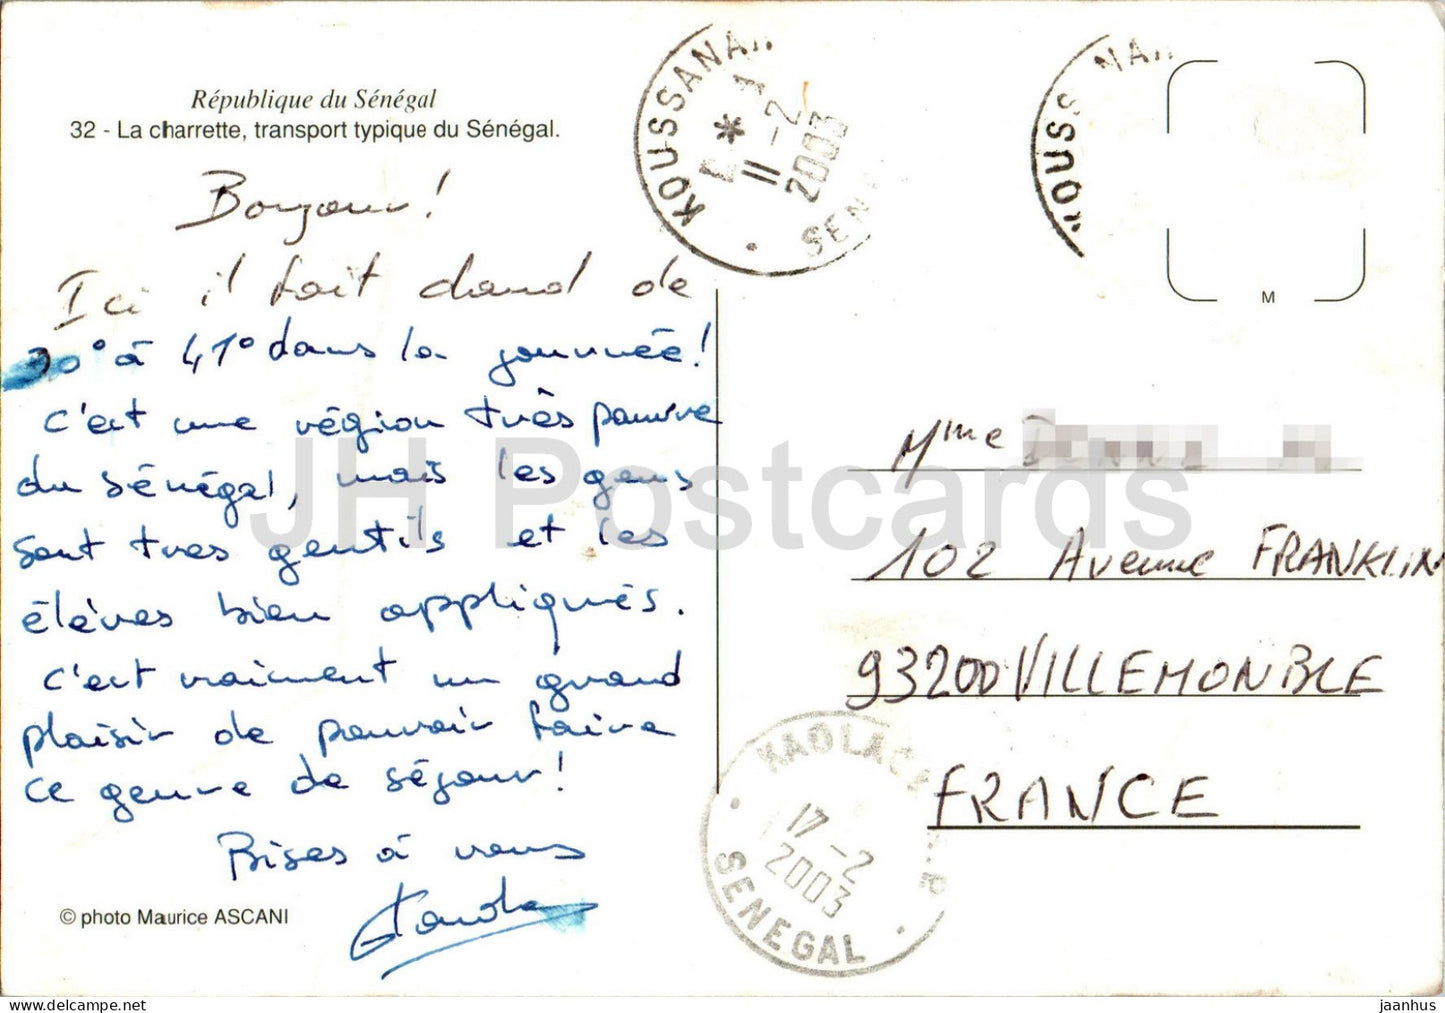 République du Sénégal
32 - La charrette, transport typique du Sénégal.
Bonjour!
Ici il fait chaud de
30° à 41° dans la journée!
c'est une région très pauvre
du Sénégal, mais les gens
sont très gentils et les
élèves bien appliqués.
c'est vraiment un grand
plaisir de pouvoir faire
ce genre de séjour!
Bises à vous
© photo Maurice ASCANI
KOUSSANAR
11-2
2003
SEN
KOUSSANAR
M
Mme
102 Avenue FRANKLIN
93200 VILLEMONBLE
FRANCE
KAOLACK
17-2
2003
SENEGAL
JH Postcards
jaanhus @ DELCAMPE.NET